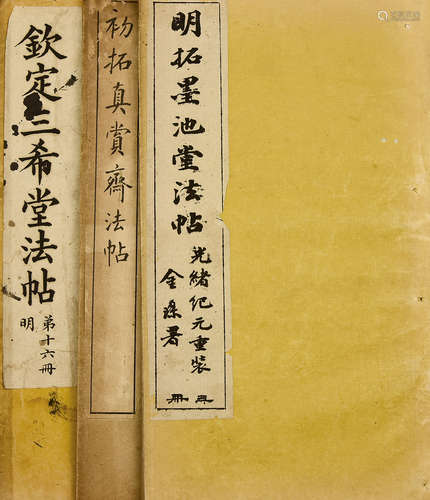 明拓墨池堂法帖
光緒紀元重裝
金瑑署
初拓真賞齋法帖
欽定三希堂法帖
第十六冊
明